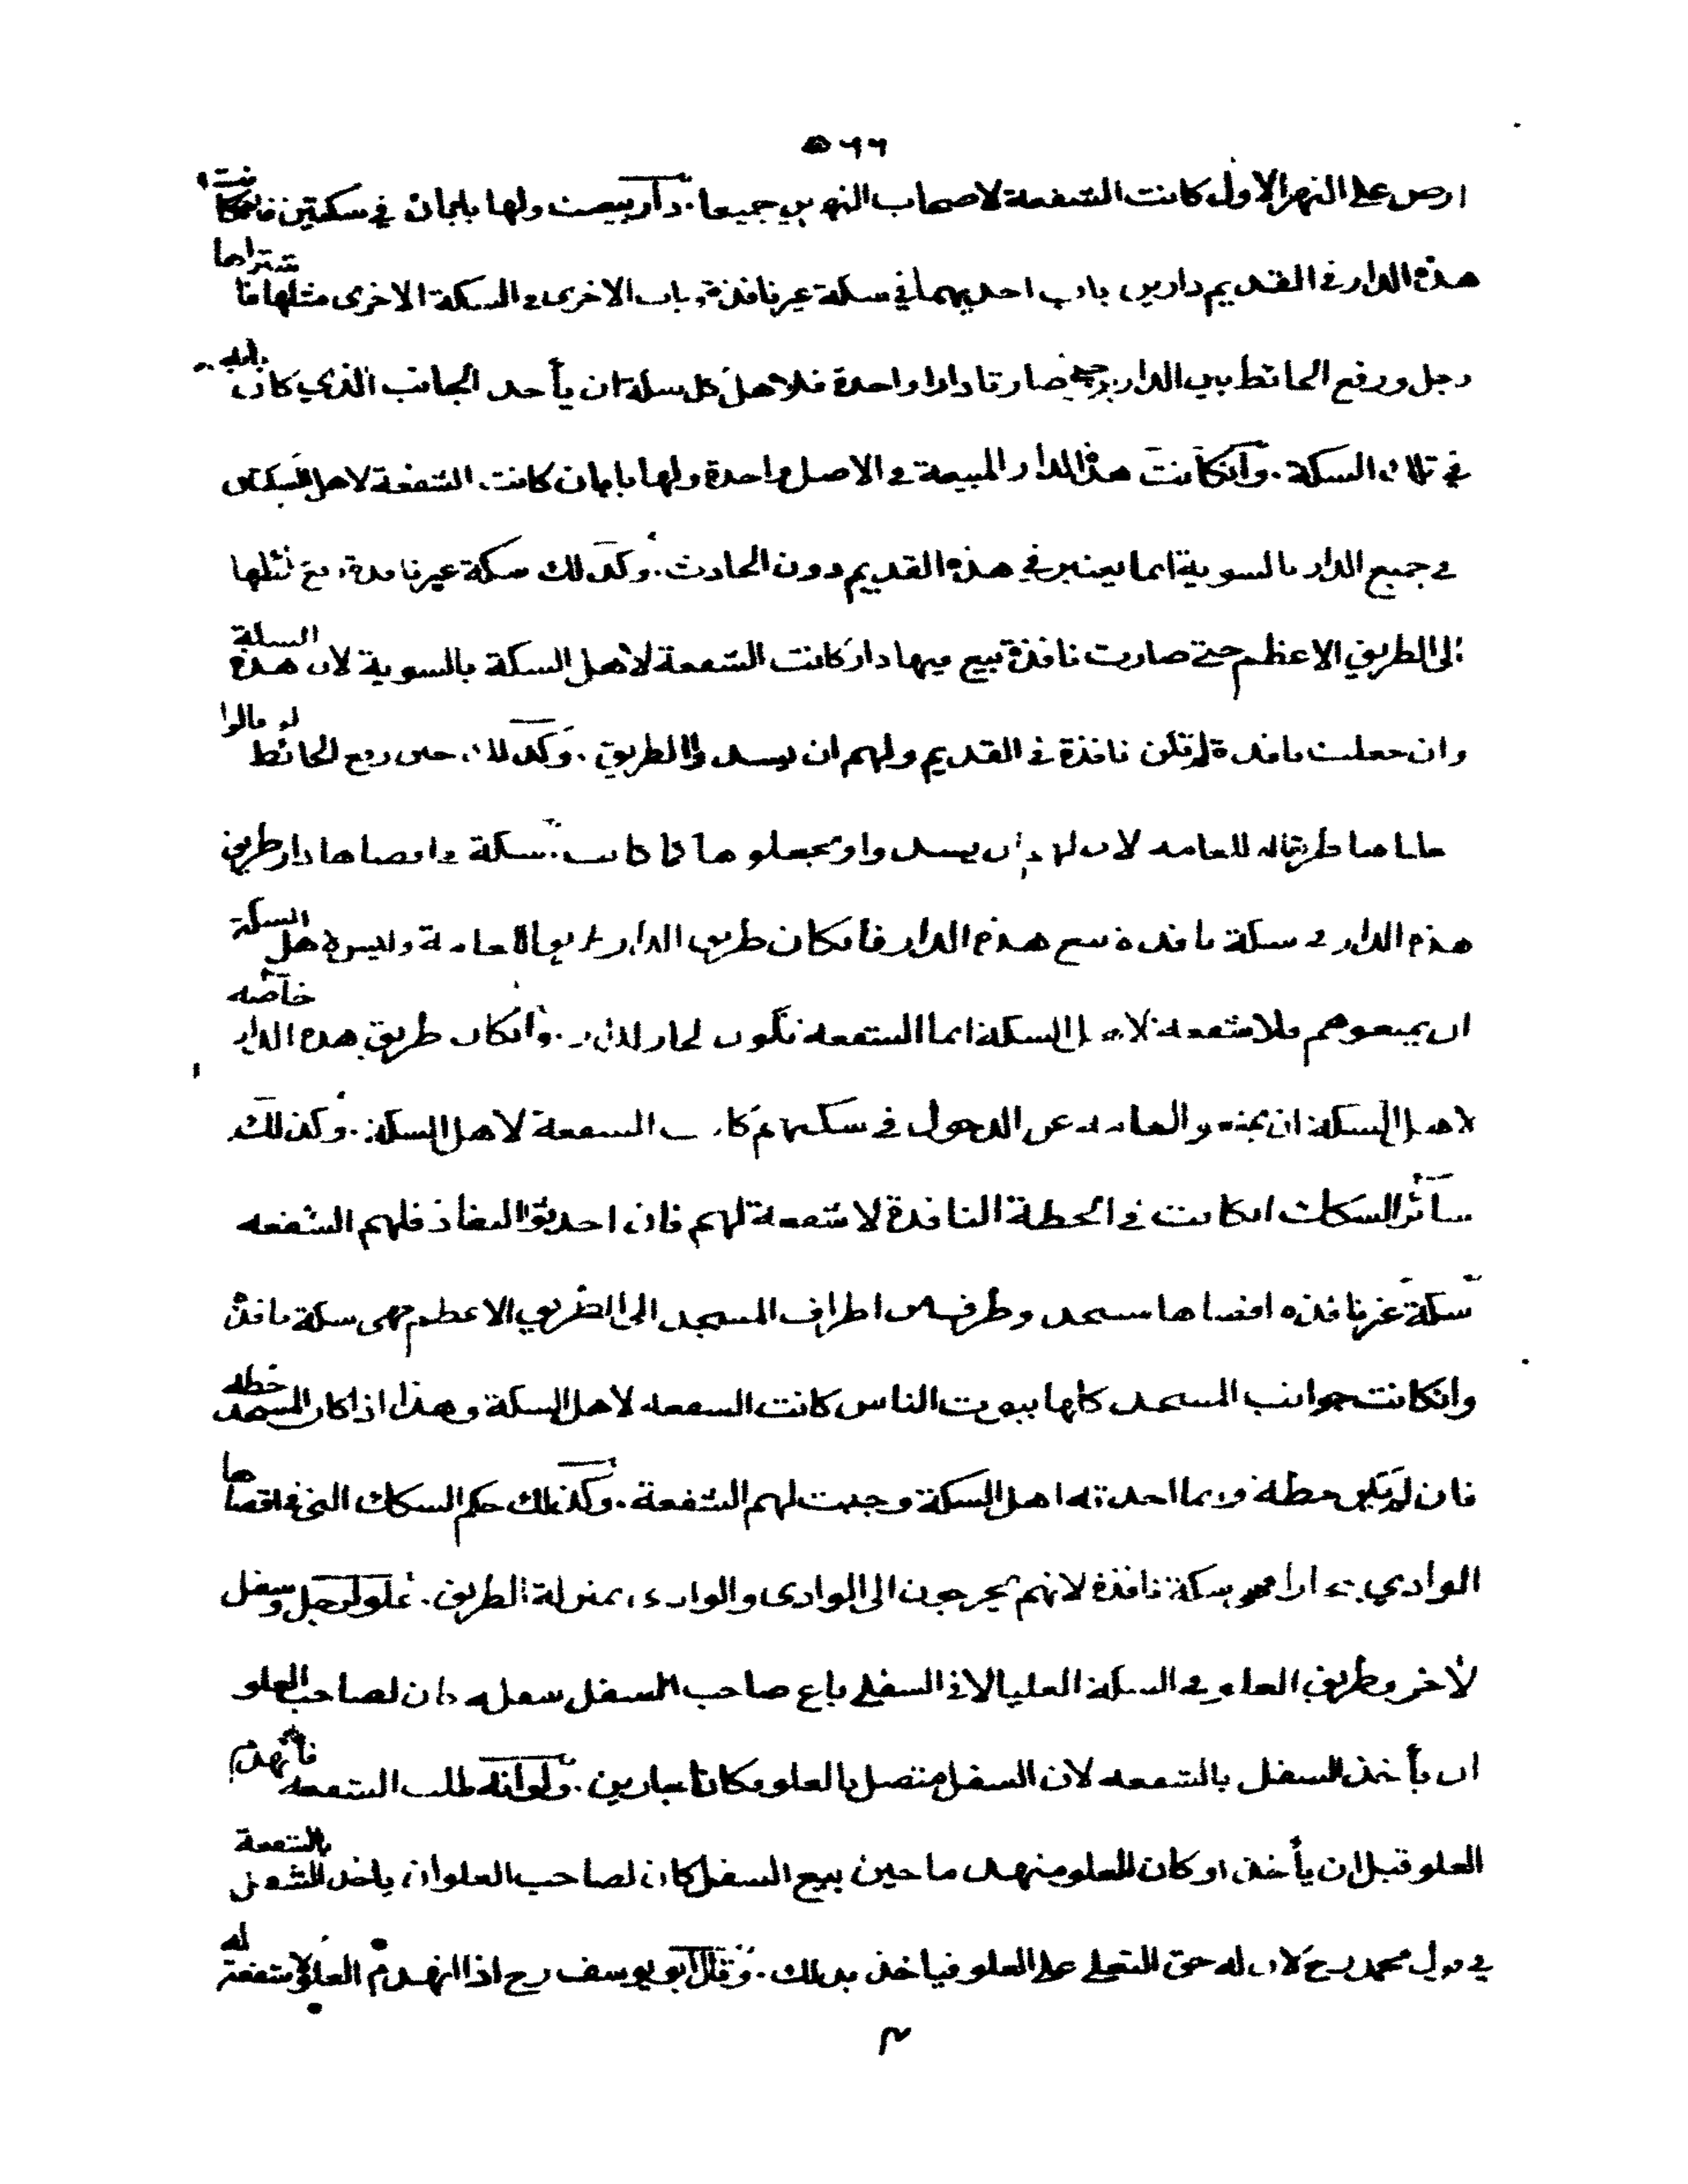 ٥٦٦
ارض على النهر الاول كانت الشفعة لاصحاب النهرين جميعا . دار بيعت ولها بابان في سكتين فان كانت
هذه الدار في القديم دارين باب احديهما في سكة غير نافذة وباب الاخرى في السكة الاخرى مثلها فاشتراها
رجل ورفع الحائط بين الدارين حتى صارتا دارا واحدة فلاهل كل سكة ان يأخذ الجانب الذي كان بابه
في تلك السكة . وان كانت هذه الدار المبيعة في الاصل واحدة ولها بابان كانت الشفعة لاهل السكتين
في جميع الدار بالسوية انما يعتبر في هذه القديم دون الحادث . وكذلك سكة غير نافذة
الى الطريق الاعظم حتى صارت نافذة بيع فيها دار كانت الشفعة لاهل السكة بالسوية لان هذه السكة
وان جعلت نافذة لم تكن نافذة في القديم ولهم ان يسدوا الطريق . وكذلك حين رفع الحائط لو قالوا
جعلناها طريقا للعامه لان لهم ان يسدوا ويجعلوها كما كانت . سكة اقصاها دار طريق
هذه الدار في سكة نافذه بيع هذه الدار فان كان طريق الدار للعامة وليس لاهل السكة
ان يمنعوهم فلا شفعه لاهل السكة انما الشفعه تكون لجار الدار . وان كان طريق هذه الدار خاصه
لاهل السكة ان يمنعوا العامه عن الدخول في سكتهم كانت الشفعة لاهل السكة . وكذلك
سائر السكك ان كانت في الخطة النافذة لا شفعة لهم فان احدثوا النفاذ فلهم الشفعه
سكة غير نافذه اقصاها مسجد وطرف من اطراف المسجد الى الطريق الاعظم فهى سكة نافذة
وان كانت جوانب المسجد كلها بيوت الناس كانت الشفعه لاهل السكة وهذا اذا كان المسجد خطه
فان لم يكن خطة وربما احدثه اهل السكة وجبت لهم الشفعة . وكذلك حكم السكك التي في اقصاها
الوادي سكة نافذة لانهم يخرجون الى الوادى والوادى بمنزلة الطريق . علو لرجل وسفل
لآخر وطريق العلو في السكة العليا لا في السفلى باع صاحب السفل سفله كان لصاحب العلو
ان يأخذ السفل بالشفعه لان السفل متصل بالعلو فكانا جارين . ولو انه طلب الشفعه فانهدم
العلو قبل ان يأخذ او كان العلو منهدما حين بيع السفل كان لصاحب العلو ان ياخذ السفل بالشفعة
في قول محمد رح لان له حق التعلى على العلو فياخذ بذلك . وقال ابو يوسف رح اذا انهدم العلو لا شفعة له